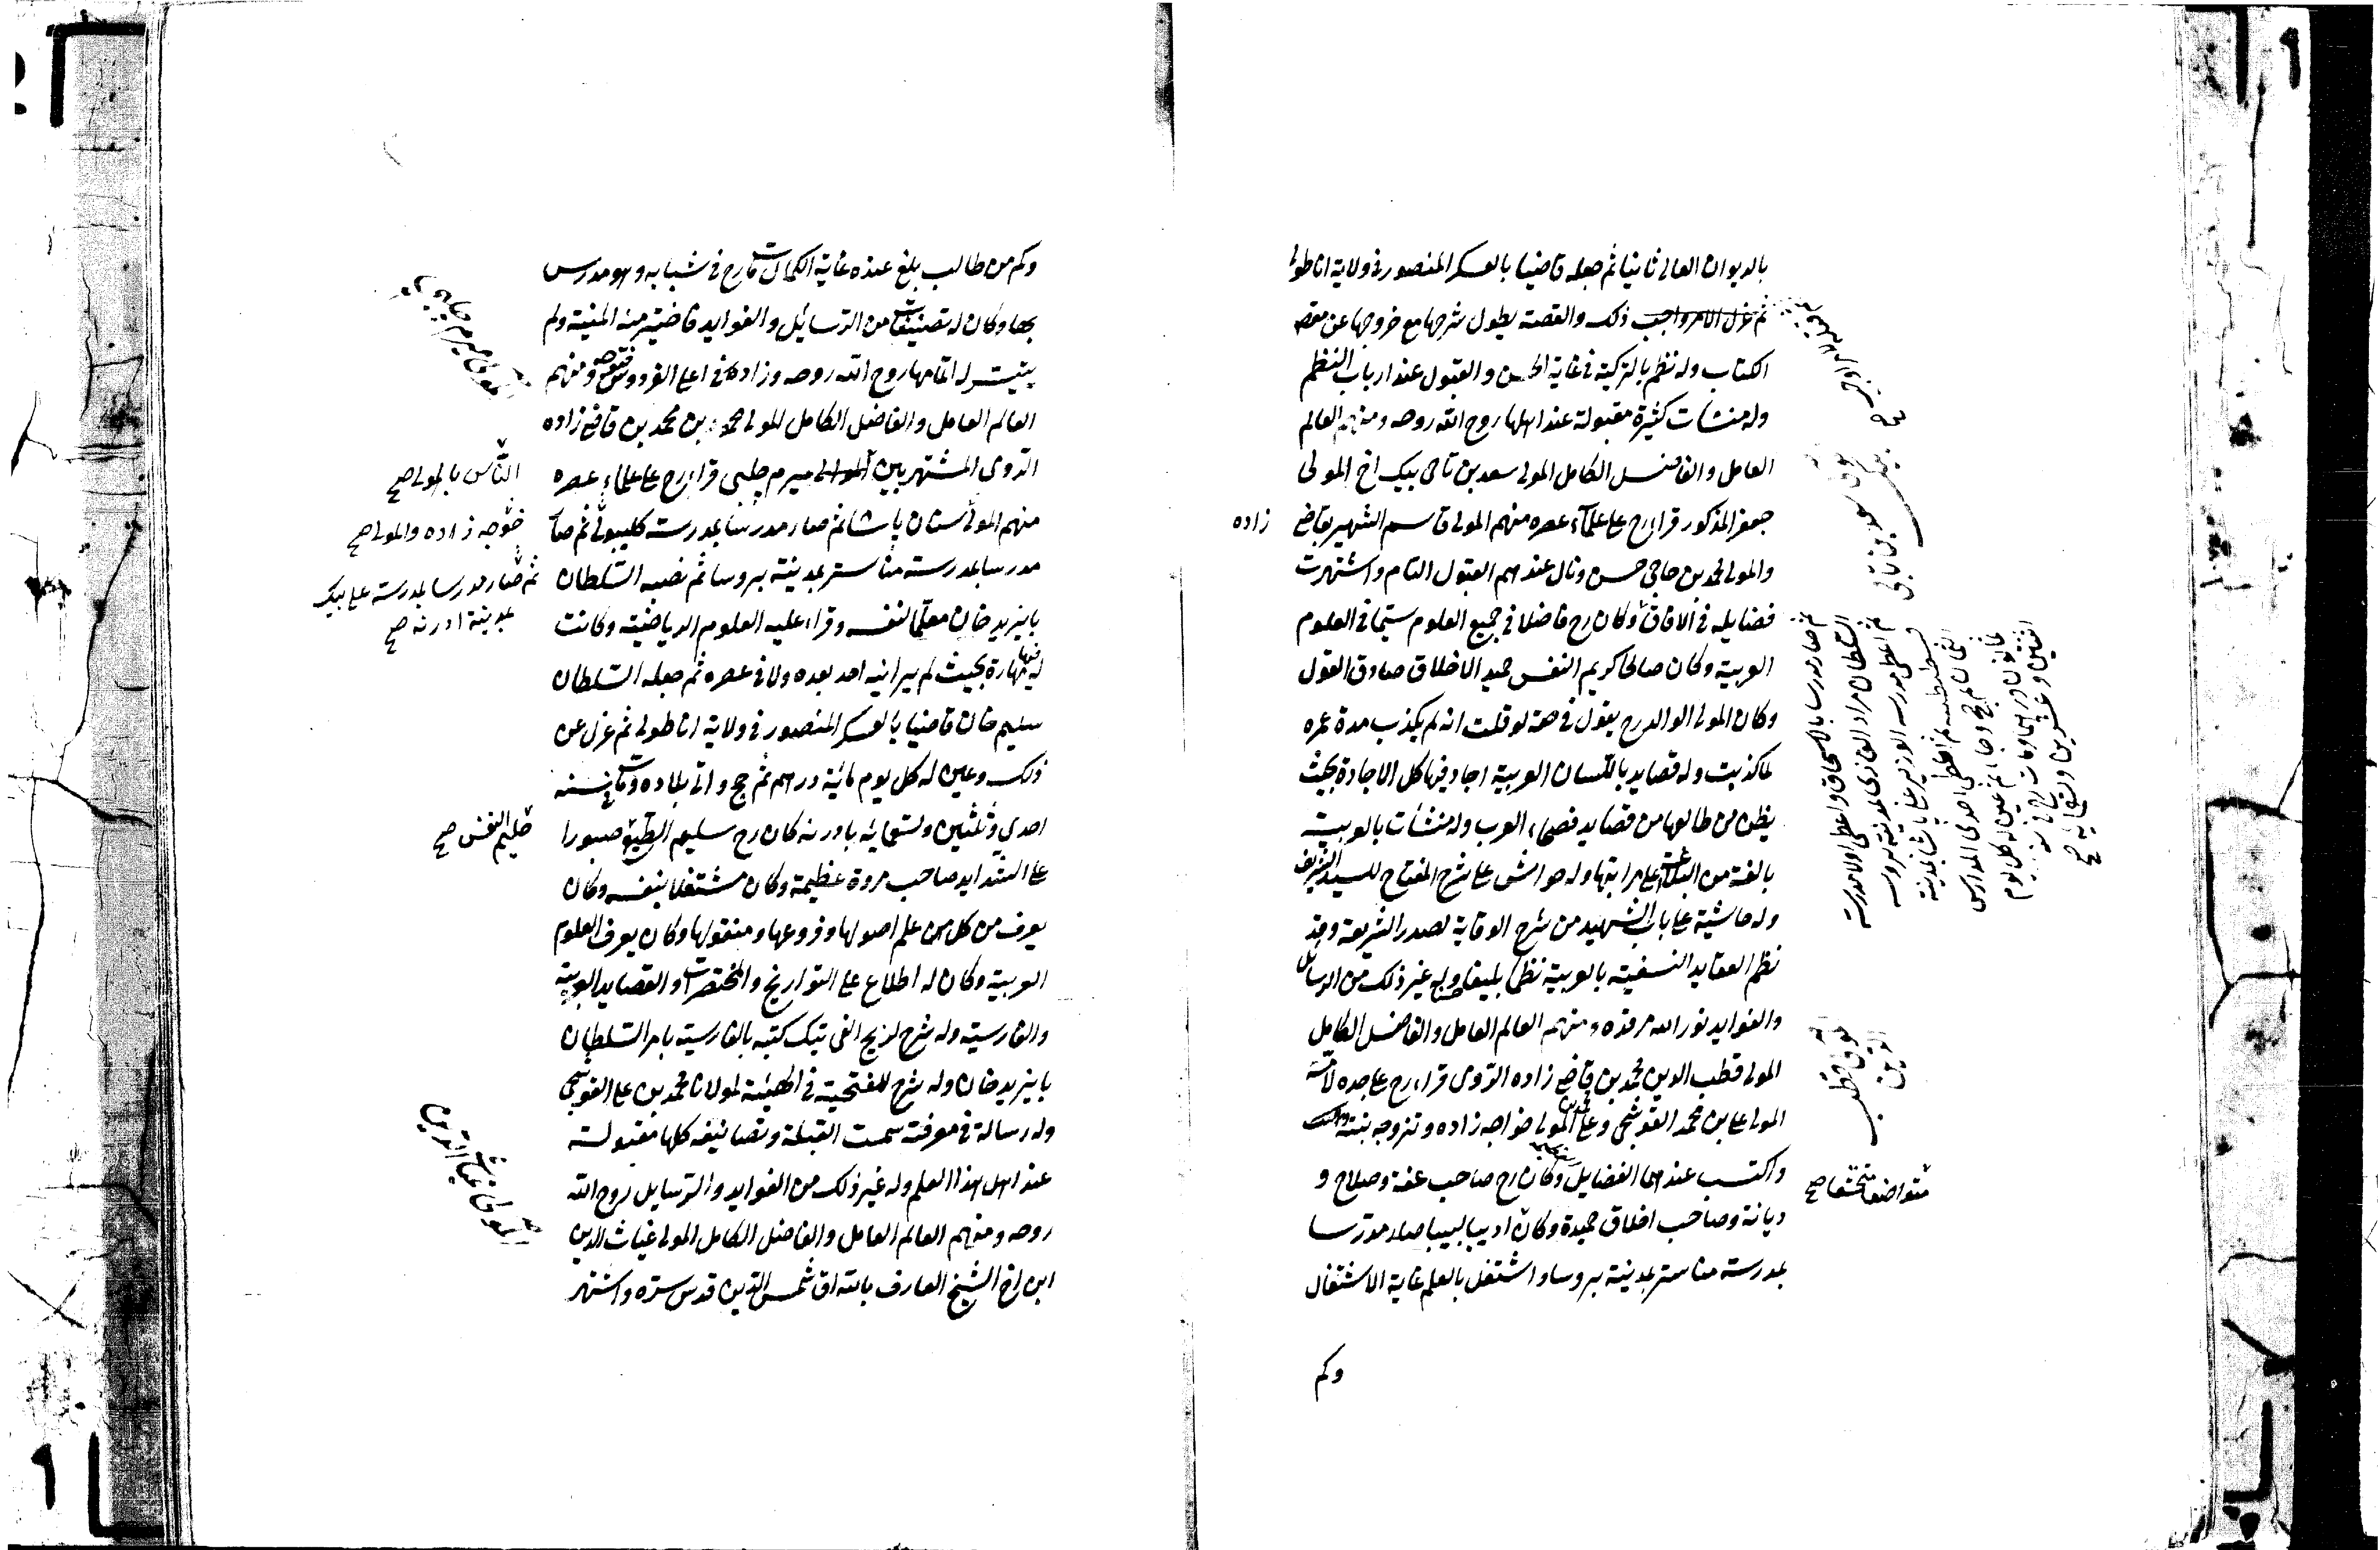 بالديوان العالى ثانيا ثم جعله قاضيا بالعسكر المنصور فى ولاية اناطولى
ثم عزل لامر واجب ذلك والقصة يطول شرحها مع خروجها عن مقصد
الكتاب وله نظم بالتركية فى غاية الحسن والقبول عند ارباب النظم
وله منشات كثيرة مقبولة عند اهلها روح الله روحه ومنهم العالم
العامل والفاضل الكامل المولى سعد بن تاجى بيك اخ المولى
جعفر المذكور قرا رح على علماء عصره منهم المولى قاسم الشهير بقاضى زاده
والمولى محمد بن حاجى حسن ونال عندهم القبول التام واشتهرت
فضايله فى الافاق وكان رح فاضلا فى جميع العلوم سيما فى العلوم
العربية وكان صالحا كريم النفس حميد الاخلاق صادق القول
وكان المولى الوالد رح يقول فى حقه لو قلت انه لم يكذب مدة عمره
لما كذبت وله قصايد باللسان العربية اجاد فيها كل الاجادة بحيث
يظن من طالعها من قصايد فصحاء العرب وله منشات بالعربية
بالغة من البلاغة اعلى مراتبها وله حواش على شرح المفتاح للسيد الشريف
وله حاشية على باب الشهيد من شرح الوقاية لصدر الشريعة وقد
نظم العقايد النسفية بالعربية نظما بليغا وله غير ذلك من الرسائل
والفوايد نور الله مرقده ومنهم العالم العامل والفاضل الكامل
المولى قطب الدين محمد بن محمد بن قاضى زاده الرومى قرا رح على جده لامه
المولى على بن محمد القوشجى وعلى المولى خواجه زاده وتزوج بنته
واكتسب عندهما الفضايل وكان رح صاحب عفة وصلاح و
ديانة وصاحب اخلاق حميدة وكان اديبا لبيبا صار مدرسا
بمدرسة مناستر بمدينة بروسا واشتغل بالعلم غاية الاشتغال
وكم
المولى سعد بن تاجى بيك
ثم صار مدرسا بالاسحاقية واعطى اولا مدرسة
السلطان مراد الغازى بمدينة بروسه
ثم اعطى مدرسة الوزير على باشا بمدينة
قسطنطينيه ثم اعطى احدى المدارس
الثمان ثم حج وجاء ثم عين له كل يوم
ثمانون درهما ومات رح فى سنة
اثنتين وعشرين وتسعمايه صح
المولى قطب
الدين
متواضعا متخشعا صح
وكم من طالب بلغ عنده غاية الكمال مات رح فى شبابه وهو مدرس
بها وكان له تصنيفات من الرسائل والفوايد فاخترمته المنية ولم
يتيسر له اتمامها روح الله روحه وزاد فى اعلى الفردوس فتوحه ومنهم
العالم العامل والفاضل الكامل المولى محمود بن محمد بن قاضى زاده
الرومى المشتهر بين الناس بالمولى ميرم جلبى قرا رح على علماء عصره
منهم المولى خوجه زاده والمولى سنان پاشا ثم صار مدرسا بمدرسة كليبولى ثم صار
مدرسا بمدرسة مناستر بمدينة بروسا ثم نصبه السلطان
بايزيد خان معلما لنفسه وقراء عليه العلوم الرياضية وكانت
له فيها مهارة بحيث لم يدانيه احد بعده ولا فى عصره ثم جعله السلطان
سليم خان قاضيا بالعسكر المنصور فى ولاية اناطولى ثم عزل عن
ذلك وعين له كل يوم مائة درهم ثم حج واتى بلاده ومات بها سنة
احدى وثلثين وتسعمائه بادرنه كان رح سليم الطبع صبورا
على الشدايد صاحب مروة عظيمة وكان مشتغلا بنفسه وكان
يعرف من كل من علم اصولها وفروعها ومنقولها وكان يعرف العلوم
العربية وكان له اطلاع على التواريخ والمختصرات والقصايد العربية
والفارسية وله شرح لزيج الغ بيك كتبه بالفارسية بامر السلطان
بايزيد خان وله شرح للفتحية فى الهيئة لمولانا محمد بن على القوشجى
وله رسالة فى معرفة سمت القبلة وتصانيفه كلها مقبولة
عند اهل هذا العلم وله غير ذلك من الفوايد والرسايل روح الله
روحه ومنهم العالم العامل والفاضل الكامل المولى غياث الدين
ابن اخ الشيخ العارف بالله اق شمس الدين قدس سره واشتهر
المولى ميرم جلبى
الناس بالمولى صح
خوجه زاده والمولى صح
ثم صار مدرسا بمدرسة على بيك
بمدينة ادرنه صح
حليم النفس صح
المولى غياث الدين